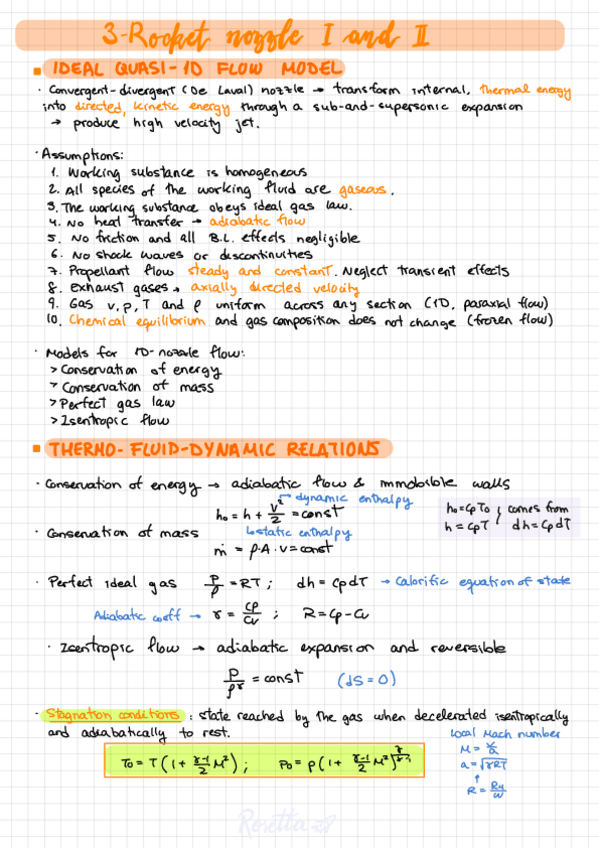 3-Rocket nozzle I and II
IDEAL QUASI-1D FLOW MODEL
· Convergent-divergent (De Laval) nozzle → transform internal, thermal energy
into directed, kinetic energy through a sub-and-supersonic expansion
→ produce high velocity jet.
· Assumptions:
1. Working substance is homogeneous
2. All species of the working fluid are gaseous.
3. The working substance obeys ideal gas law.
4. No heat transfer → adiabatic flow
5. No friction and all B.L. effects negligible
6. No shock waves or discontinuities
7. Propellant flow steady and constant. Neglect transient effects
8. Exhaust gases → axially directed velocity
9. Gas v, p, T and ρ uniform across any section (1D, paraxial flow)
10. Chemical equilibrium and gas composition does not change (frozen flow)
· Models for 1D-nozzle flow:
> Conservation of energy
> Conservation of mass
> Perfect gas law
> Isentropic flow
THERMO-FLUID-DYNAMIC RELATIONS
· Conservation of energy → adiabatic flow & immobible walls
→ dynamic enthalpy
h₀ = h + v²/2 = const
h₀ = cpT₀ } comes from
h = cpT } dh = cpdT
↳ static enthalpy
· Conservation of mass
ṁ = ρ·A·v = const
· Perfect ideal gas P/ρ = RT ; dh = cpdT → Calorific equation of state
Adiabatic coeff → γ = cp/cv ; R = cp - cv
· Isentropic flow → adiabatic expansion and reversible
P/ρ^γ = const (dS = 0)
· Stagnation conditions : state reached by the gas when decelerated isentropically
and adiabatically to rest.
Local Mach number
M = v/a
T₀ = T(1 + γ-1/2 M²) ; p₀ = p(1 + γ-1/2 M²)^γ/γ-1
a = √γRT
↑
R = Ru/W
Rosetta